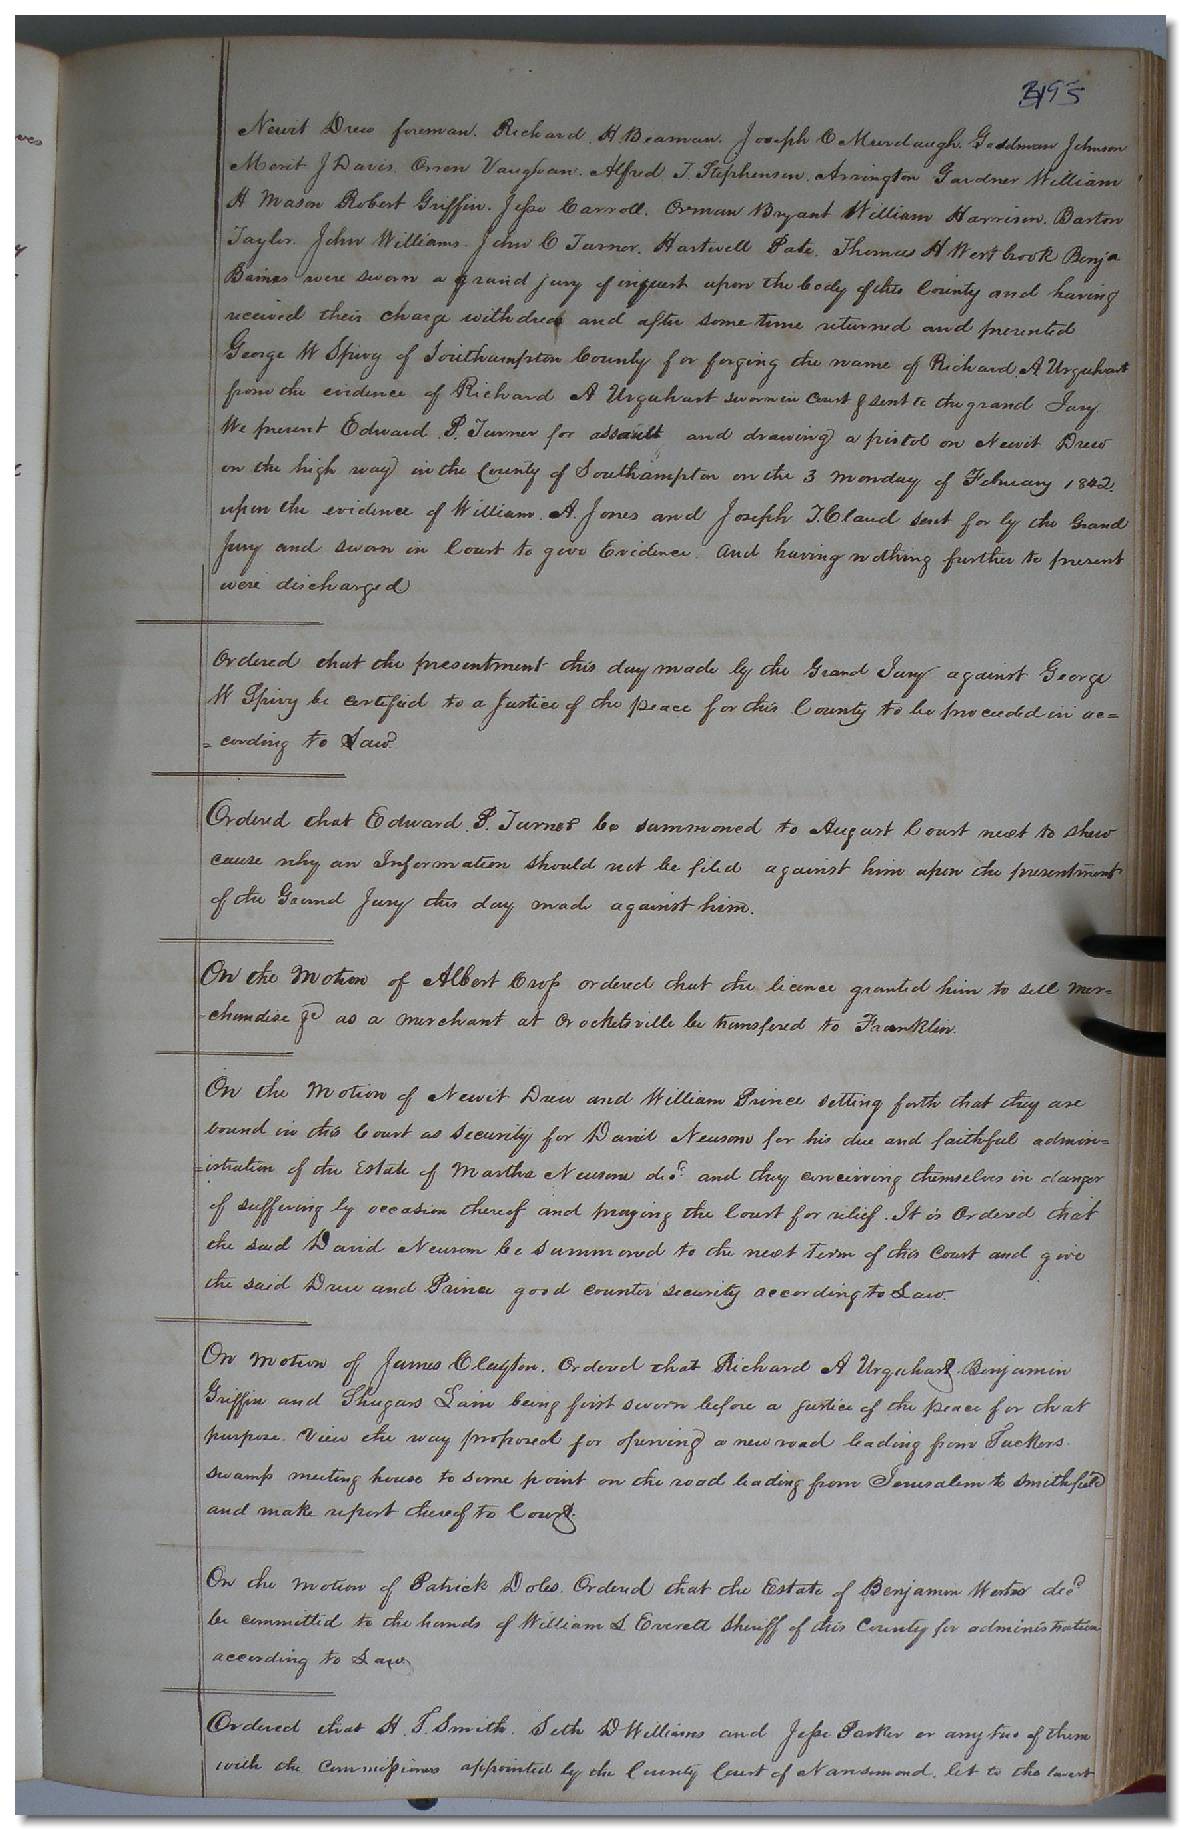 195
Newit Drew foreman. Richard H Beaman. Joseph C Murdaugh. Goodman Johnson
Merit J Davis. Orson Vaughan. Alfred T. Stephenson. Arrington Gardner William
H Mason Robert Griffin. Jesse Carroll. Orman Bryant William Harrison. Barton
Taylor. John Williams. John C Turner. Hartwell Pate. Thomas H Westbrook Benja
Bains were sworn a grand jury of inquest upon the body of this County and having
received their charge withdrew and after some time returned and presented
George W Spivy of Southampton County for forging the name of Richard A Urquhart
from the evidence of Richard A Urquhart sworn in Court & sent to the grand Jury
We present Edward P. Turner for assault and drawing a pistol on Newit Drew
on the high way in the County of Southampton on the 3 Monday of February 1842.
upon the evidence of William A. Jones and Joseph T. Claud sent for by the Grand
Jury and sworn in Court to give Evidence. And having nothing further to present
were discharged
Ordered that the presentment this day made by the Grand Jury against George
W Spivy be certified to a Justice of the peace for this County to be proceeded in ac=
=cording to Law
Ordered that Edward P. Turner be summoned to August Court next to shew
cause why an Information should not be filed against him upon the presentment
of the Grand Jury this day made against him.
On the Motion of Albert Cross ordered that the licence granted him to sell mer=
=chandise &c as a merchant at Crocketsville be transfered to Franklin.
On the Motion of Newit Drew and William Prince setting forth that they are
bound in this Court as Security for David Newsom for his due and faithful admin=
=istration of the Estate of Martha Newsom decd and they conceiving themselves in danger
of suffering by occasion thereof and praying the Court for relief. It is Ordered that
the said David Newsom be Summoned to the next Term of this Court and give
the said Drew and Prince good counter security according to Law.
On motion of James Clayton. Ordered that Richard A Urquhart. Benjamin
Griffin and Shugars Lain being first sworn before a justice of the peace for that
purpose. View the way proposed for opening a new road leading from Tuckers
swamp meeting house to some point on the road leading from Jerusalem to Smithfield
and make report thereof to Court.
On the motion of Patrick Doles. Ordered that the Estate of Benjamin decd
be committed to the hands of William S Everett Sheriff of this County for administration
according to Law
Ordered that H. T. Smith. Seth D Williams and Jesse Parker or any two of them
with the Commissioners appointed by the County Court of Nansemond. let to the lowest